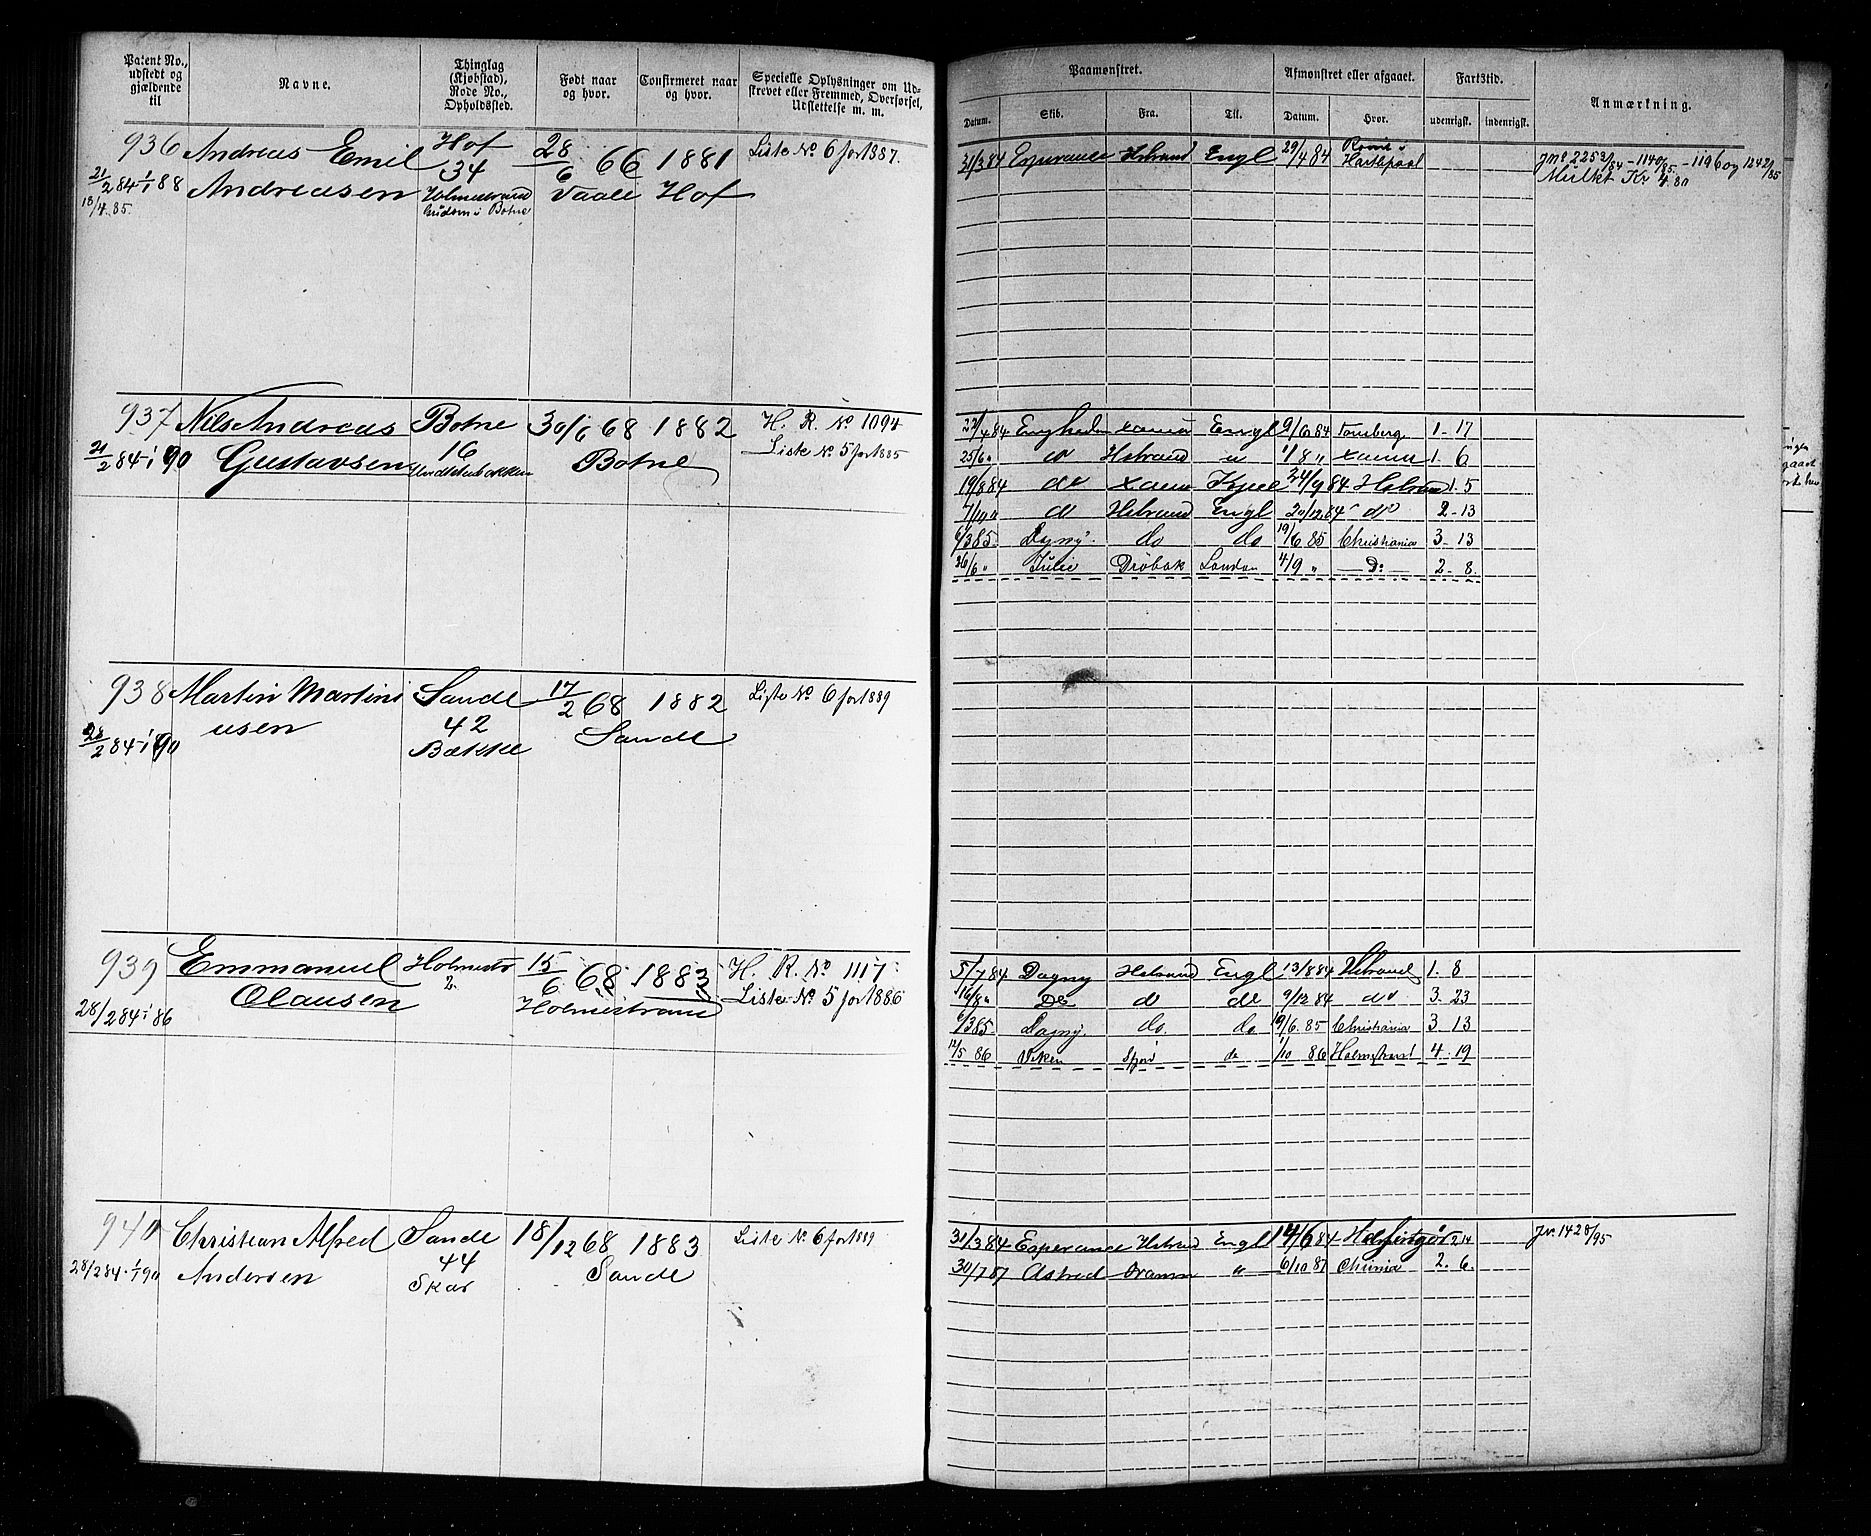 Patent No., udstedt og gjældende til
Navne.
Thinglag (Kjøbstad), Rode No., Opholdssted.
Født naar og hvor.
Confirmeret naar og hvor.
Specielle Oplysninger om Udskrevet eller Fremmed, Overførsel, Udslettelse m. m.
Paamønstret.
Afmønstret eller afgaaet.
Fartstid.
Anmærkning.
Datum. Skib. Fra. Til. Datum. Hvor. udenrigsk. indenrigsk.
936 Andreas Emil Hof 28/6 66 1881 Liste No 6 for 1887.
21/2 84 1/1 88 Andreasen 34 Vaale Hof
18/4 85. Holmestrand
i Botne
31/3 84 Esperance Hstrand Engl 29/4 84 Rømt i Hartlepool
Mulkt Kr 4.80
937 Nils Andreas Botne 30/6 68 1882 H. R. No 1094
21/2 84 - 1/1 90 Gustavsen 16 Botne Liste No 5 for 1885
22/4 84 Engheden Xania Engl 9/6 84 Tønsberg 1-17
25/6 " do Hstrand 1/8 " Xania 1. 6
19/8 84 do Xania 24/9 84 Hstrand 1. 5
7/10 " do Hstrand Engl 20/12 84 do 2-13
6/3 85. Dagny. do do 19/6 85 Christiania 3-13
26/6 " Julie Drøbak London 4/9 " Do 2-8.
938 Martin Martini Sande 17/2 68 1882 Liste No 6 for 1889
28/2 84 - 1/1 90 usen 42 Sande
Bække
939 Emmanuel Holmestr 15/6 68 1883 H. R. No 1117
Olausen 2. Liste No 5 for 1886
28/2 84 1/1 86 Holmestrand
5/7 84 Dagny Hstrand Engl 13/8 84 Hstrand 1. 8
16/8 " Do do do 9/12 84 do 3. 23
6/3 85. Dagny. do. do 19/6. 85 Christiania 3-13
12/5 86 Viken do 1/10 86 Holmestrand 4-19
940 Christian Alfred Sande 18/12 68 1883 Liste No 6 for 1889
28/2 84 - 1/1 90 Andersen 44 Sande
Skar
31/3 84 Esperance Hstrand Engl 14/6 84 Helsingør 2.14 Jr. 1428/95
30/7 87 Astred Dramm " 6/10 87 Chania 2. 6.